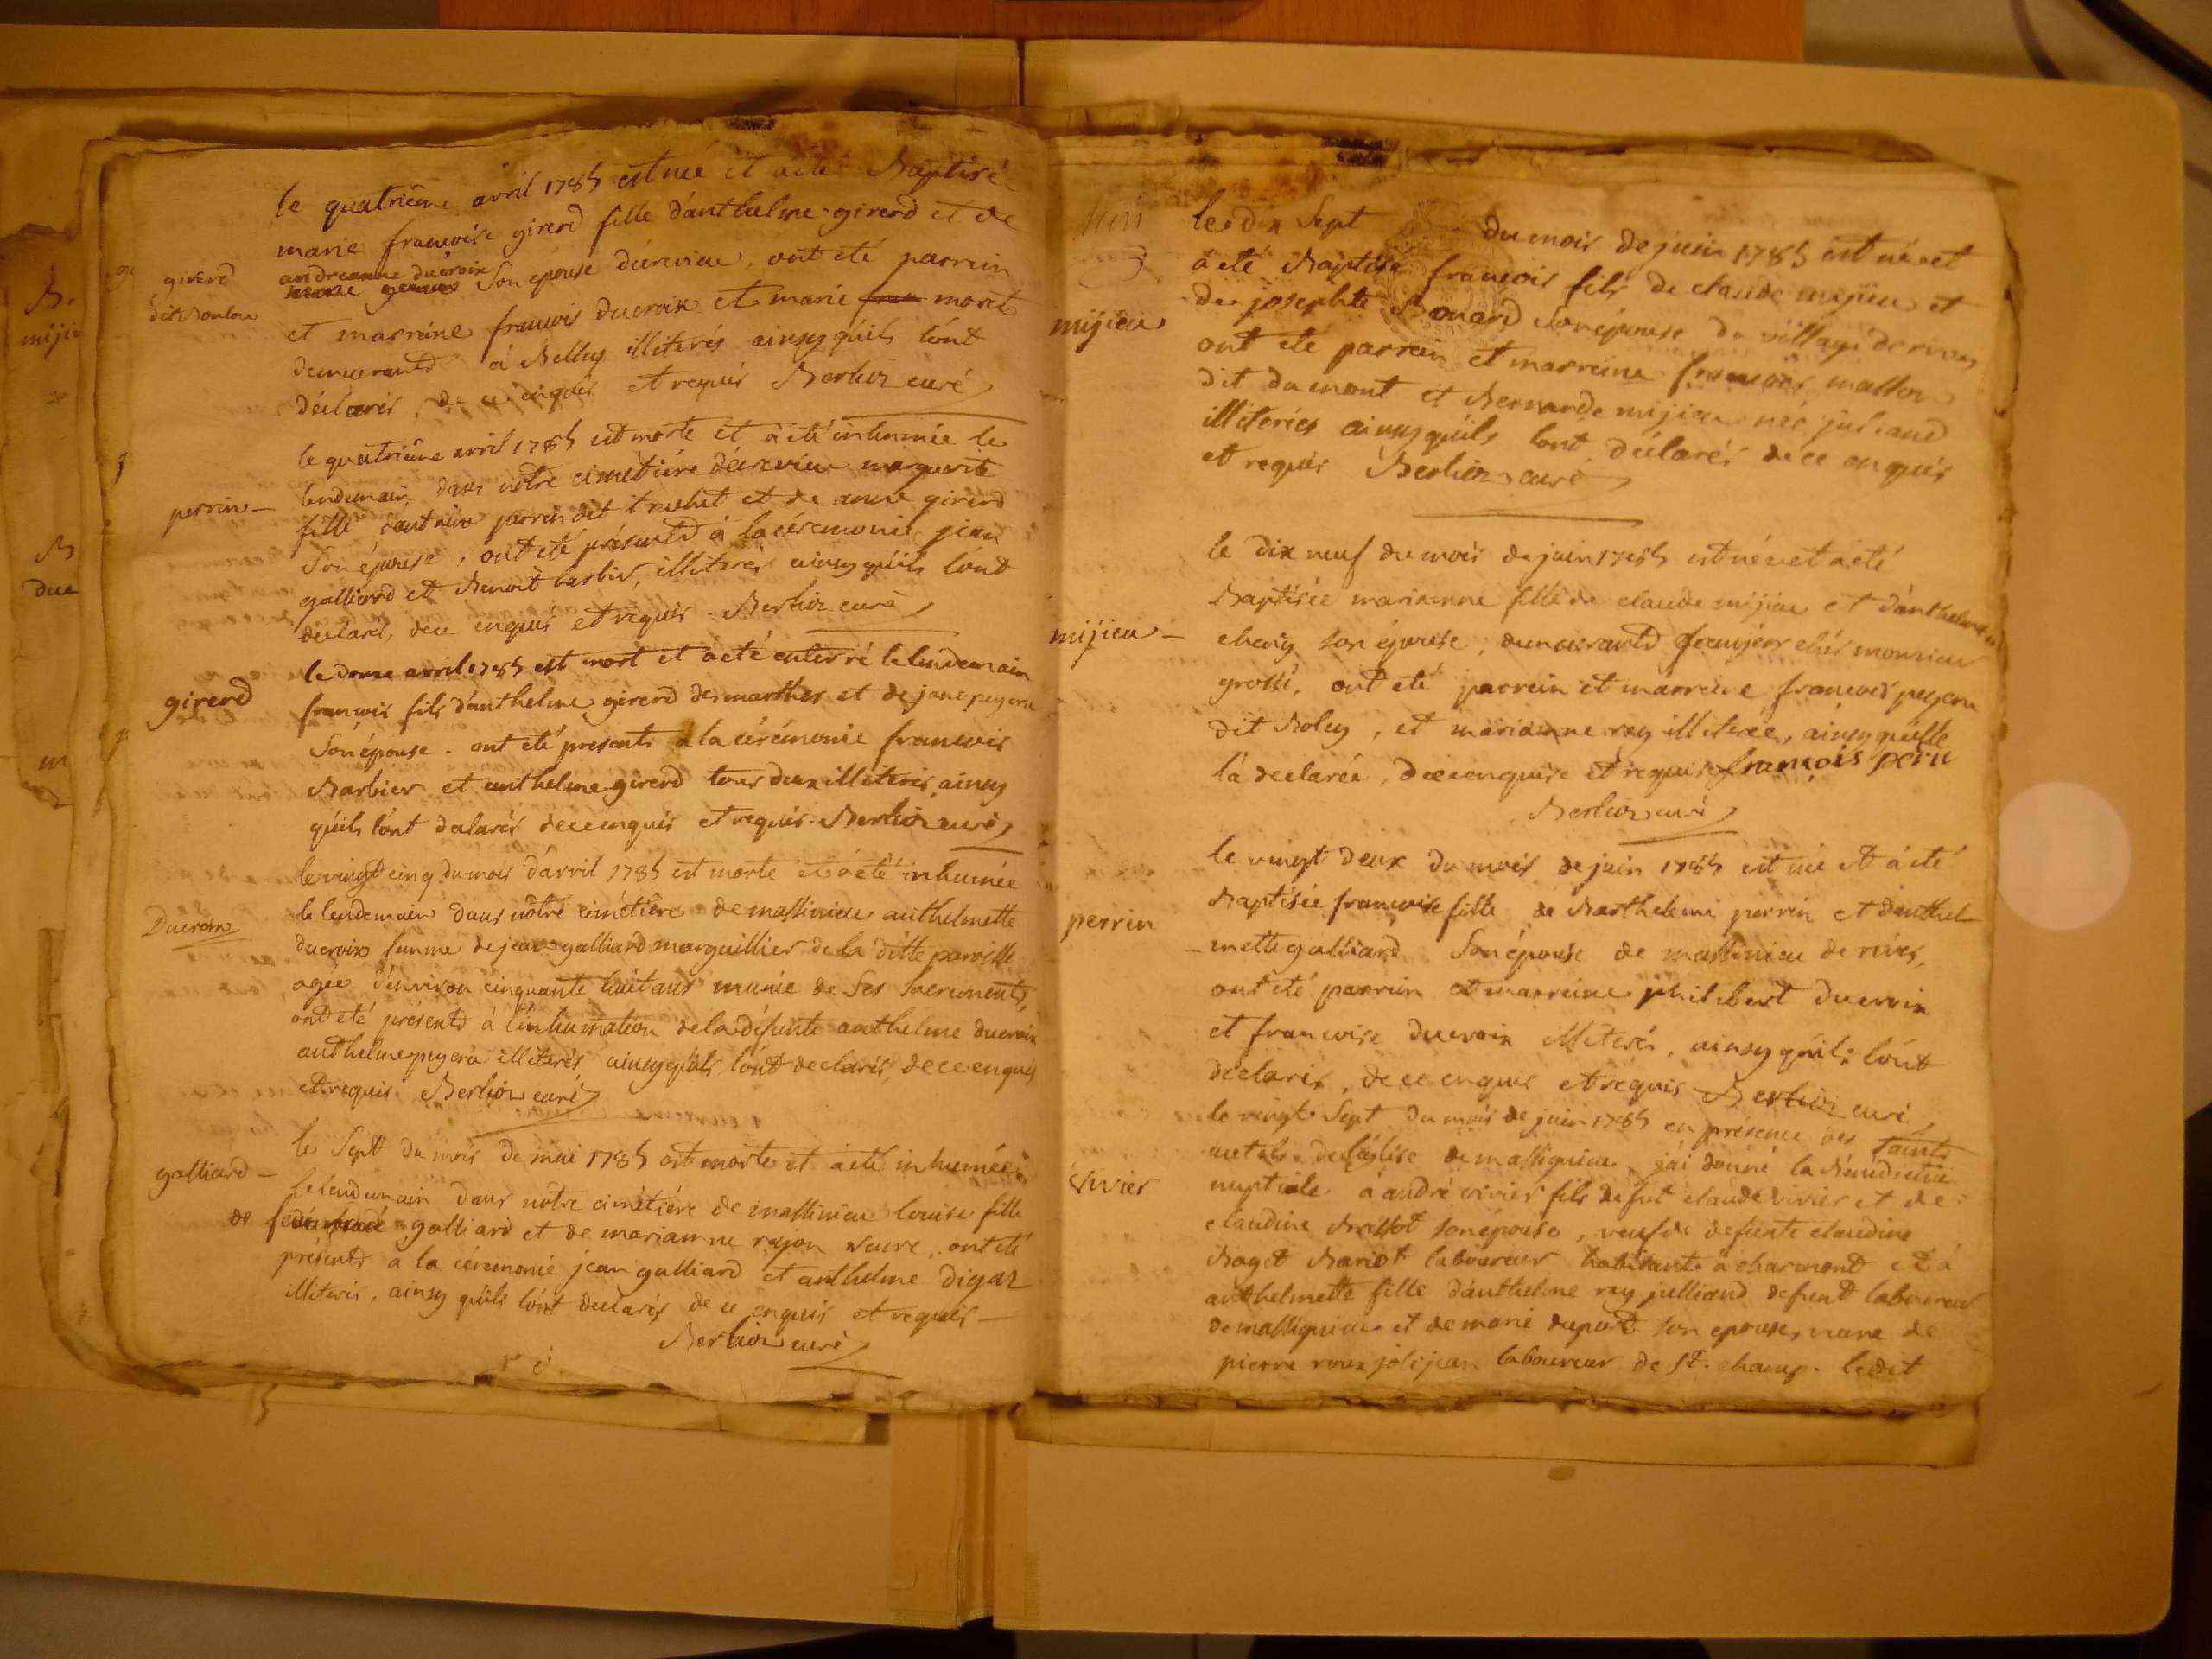 le quatrième avril 1785 est née et a été Baptisée
marie françoise girerd fille d'anthelme girerd et de
andreanne ducroix
son épouse d'écrevieu, ont été parrein
girerd
dit
et marreine françois ducroix et marie moret
demeurants à Belley illiterés ainsy qu'ils l'ont
déclarés, de ce enquis et requis Berlioz curé
le quatrième avril 1785 est morte et à été inhumée le
lendemain dans notre cimetière d'écrevieu marguerite
perrin
fille d'antoine perrin dit truchet et de anne girerd
son épouse, ont été présents à la cérémonie jean
galliard et Benoit barbier, illiterés ainsy qu'ils l'ont
declaré, de ce enquis et requis. Berlioz curé
le douze avril 1785 est mort et à été enterré le lendemain
girerd
françois fils d'anthelme girerd des marthes et de jane peyeru
son épouse. ont été presents à la cérémonie francois
Barbier et anthelme girerd tous deux illiterés, ainsy
qu'ils l'ont declarés de ce enquis et requis. Berlioz curé
le vingt cinq du mois d'avril 1785 est morte et à été inhumée
le lendemain dans nôtre cimétière de massinieu anthelmette
Ducroix
ducroix femme de jean galliard marguillier de la ditte paroisse
agée d'environ cinquante huit ans munie de ses sacrements,
ont été présents à l'inhumation de la défunte anthelme ducroix
anthelme peyeru illiterés, ainsy qu'ils l'ont declarés, de ce enquis
et requis. Berlioz curé
le sept du mois de mai 1785 est morte et à été inhumée
galliard
le lendemain dans notre cimétière de massinieu louise fille
de galliard et de marianne rayon veuve, ont été
présents à la cérémonie jean galliard et anthelme digaz
illiterés, ainsy qu'ils l'ont declarés de ce enquis et requis
Berlioz curé
le dix sept du mois de juin 1785 est né et
à été Baptisé françois fils de claude mijieu et
mijieu
de josephte Bonard son épouse du village de rives
ont été parrein et marreine françois masson
dit dumont et Bernarde mijieu née juliand
illiterées ainsy qu'ils l'ont déclarés de ce enquis
et requis Berlioz curé
le dix neuf du mois de juin 1785 est née et à été
Baptisée marianne fille de claude mijieu et d'anthelmette
mijieu
son épouse, demeurants chés monsieur
grossi, ont été parrein et marreine francois peyeru
dit Boley, et marianne rey illiterée, ainsy qu'elle
l'à declarée, de ce enquise et requise françois peru
Berlioz curé
le vingt deux du mois de juin 1785 est née et à été
Baptisée françoise fille de Barthelemi perrin et d'anthel-
perrin
-mette galliard son épouse de massinieu de rives,
ont été parrein et marreine philibert ducroix
et francoise ducroix illiterés, ainsy qu'ils l'ont
déclarés, de ce enquis et requis Berlioz curé
le vingt sept du mois de juin 1785 en presence des saints
autels de l'église de massignieu, j'ai donné la Bénédiction
vivier
nuptiale à andré vivier fils de fut claude vivier et de
claudine Brissot son épouse, veuf de defunte claudine
laboureur habitant à charmont et à
anthelmette fille d'anthelme rey julliand defunt laboureur
de massignieu et de marie duport son epouse, veuve de
pierre roux jolijean laboureur de St. champ. ledit